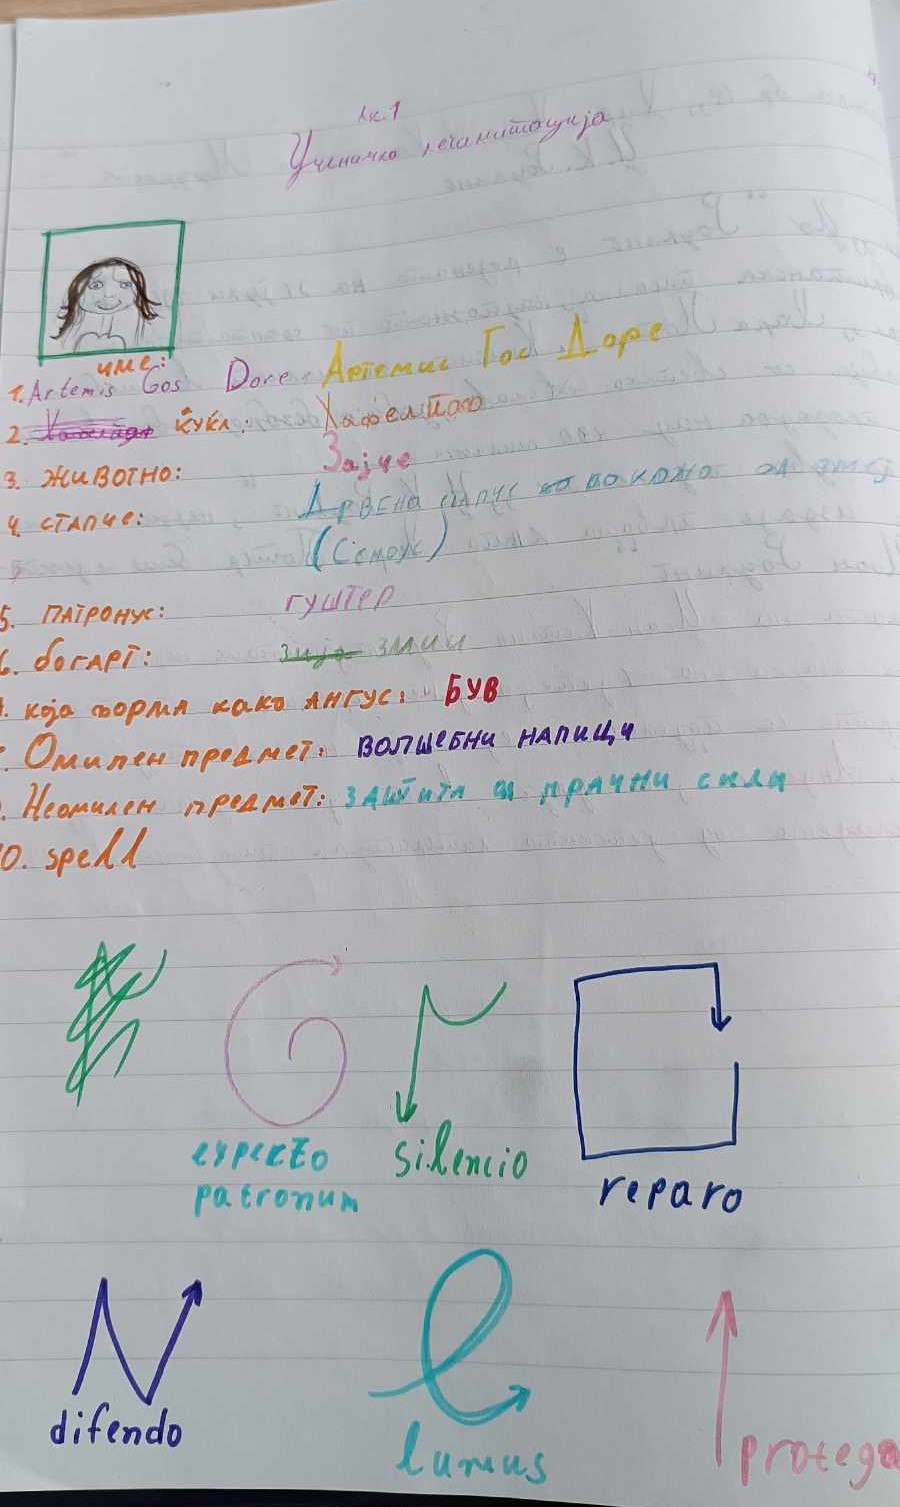 Лк.1
Ученичко
име:
1. Artemis Gos Dore Артемис Гос Доре
2. Кукл: Хафелпаф
3. ЖИВОТНО: Зајче
4. СТАПЧЕ: ДРВЕНО СО КОЖА ОД
(Смок)
5. ПАТРОНУС: ГУШТЕР
6. БОГАРТ: ЗМИИ
КОЈА ФОРМА КАКО АНГУС: БУВ
Омилен предмет: ВОЛШЕБНИ НАПИЦИ
Неомилен предмет: ЗАШТИТА од мрачни сили
10. spell
expekto
patronum
silencio
reparo
difendo
lumus
protego